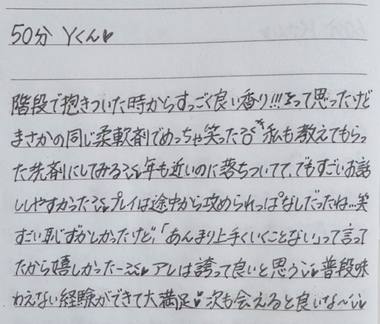 50分 Yくん♥
階段で抱きついた時からすっごく良い香り!!!って思ったけど
まさかの同じ柔軟剤でめっちゃ笑った 私も教えてもらっ
た洗剤にしてみる 年も近いのに落ちついてて、でもすごいお話
ししやすかった プレイは途中から攻められっぱなしだったね...笑
すごい恥ずかしかったけど「あんまり上手くいくことない」って言って
たから嬉しかったー♥ アレは誇って良いと思う 普段味
わえない経験ができて大満足♥ 次も会えると良いな〜